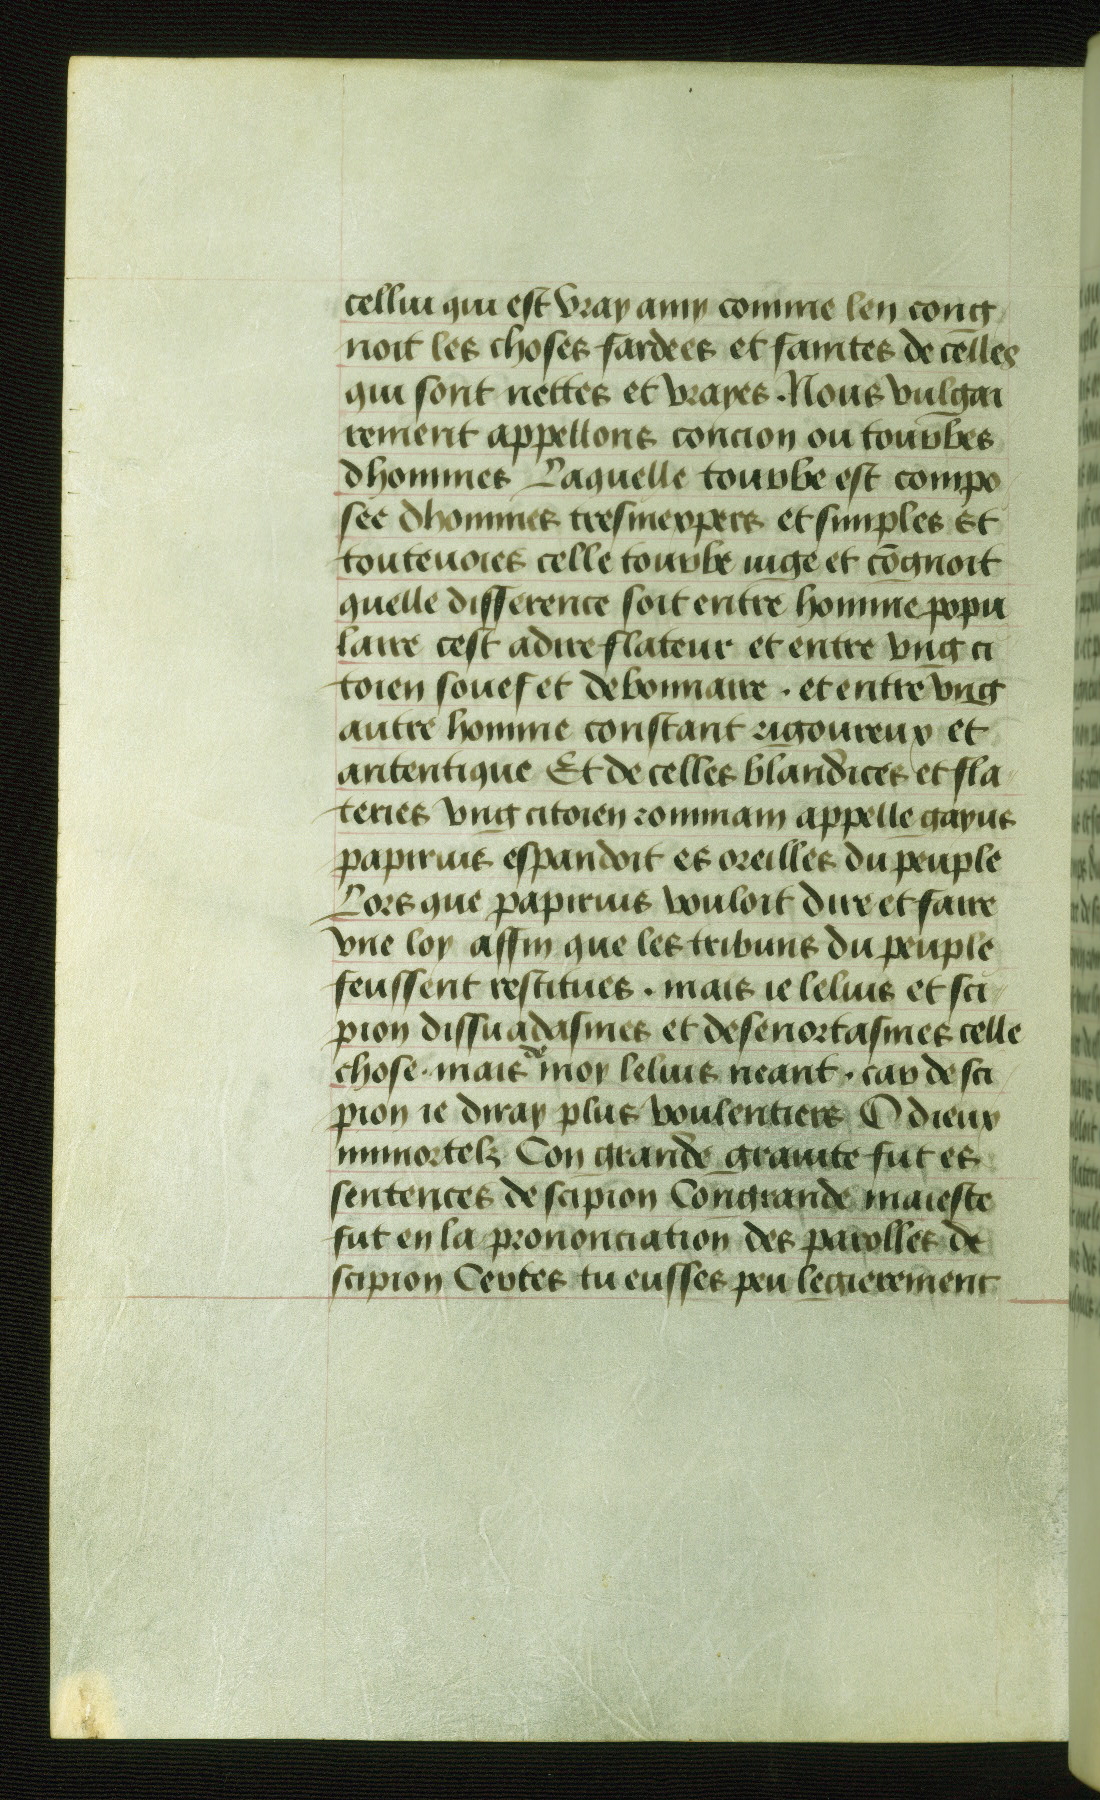 cellui qui est vray amy comme len cong
noit les choses fardees et faintes de celles
qui sont nettes et vrayes . Nous vulgai
rement appellons concion ou tourbes
dhommes Laquelle tourbe est compo
see dhommes tresinexpers et simples Et
touteuoies celle tourbe iuge et cōgnoit
quelle difference soit entre homme popu
laire cest adire flateur et entre vng ci
toien souef et debonnaire . et entre vng
autre homme constant rigoureux et
antentique Et de celles blandices et fla
teries vng citoien rommain appelle gayus
papirius espandoit es oreilles du peuple
Lors que papirius vouloit dire et faire
vne loy affin que les tribuns du peuple
feussent restitues . mais ie lelius et sci
pion dissuadasmes et desenortasmes celle
chose . mais de moy lelius neant . car de sci
pion ie diray plus voulentiers O dieux
immortelz Con grande grauite fut es
sentences de scipion Con grande maieste
fut en la prononciation des parolles de
scipion Certes tu eusses peu legierement